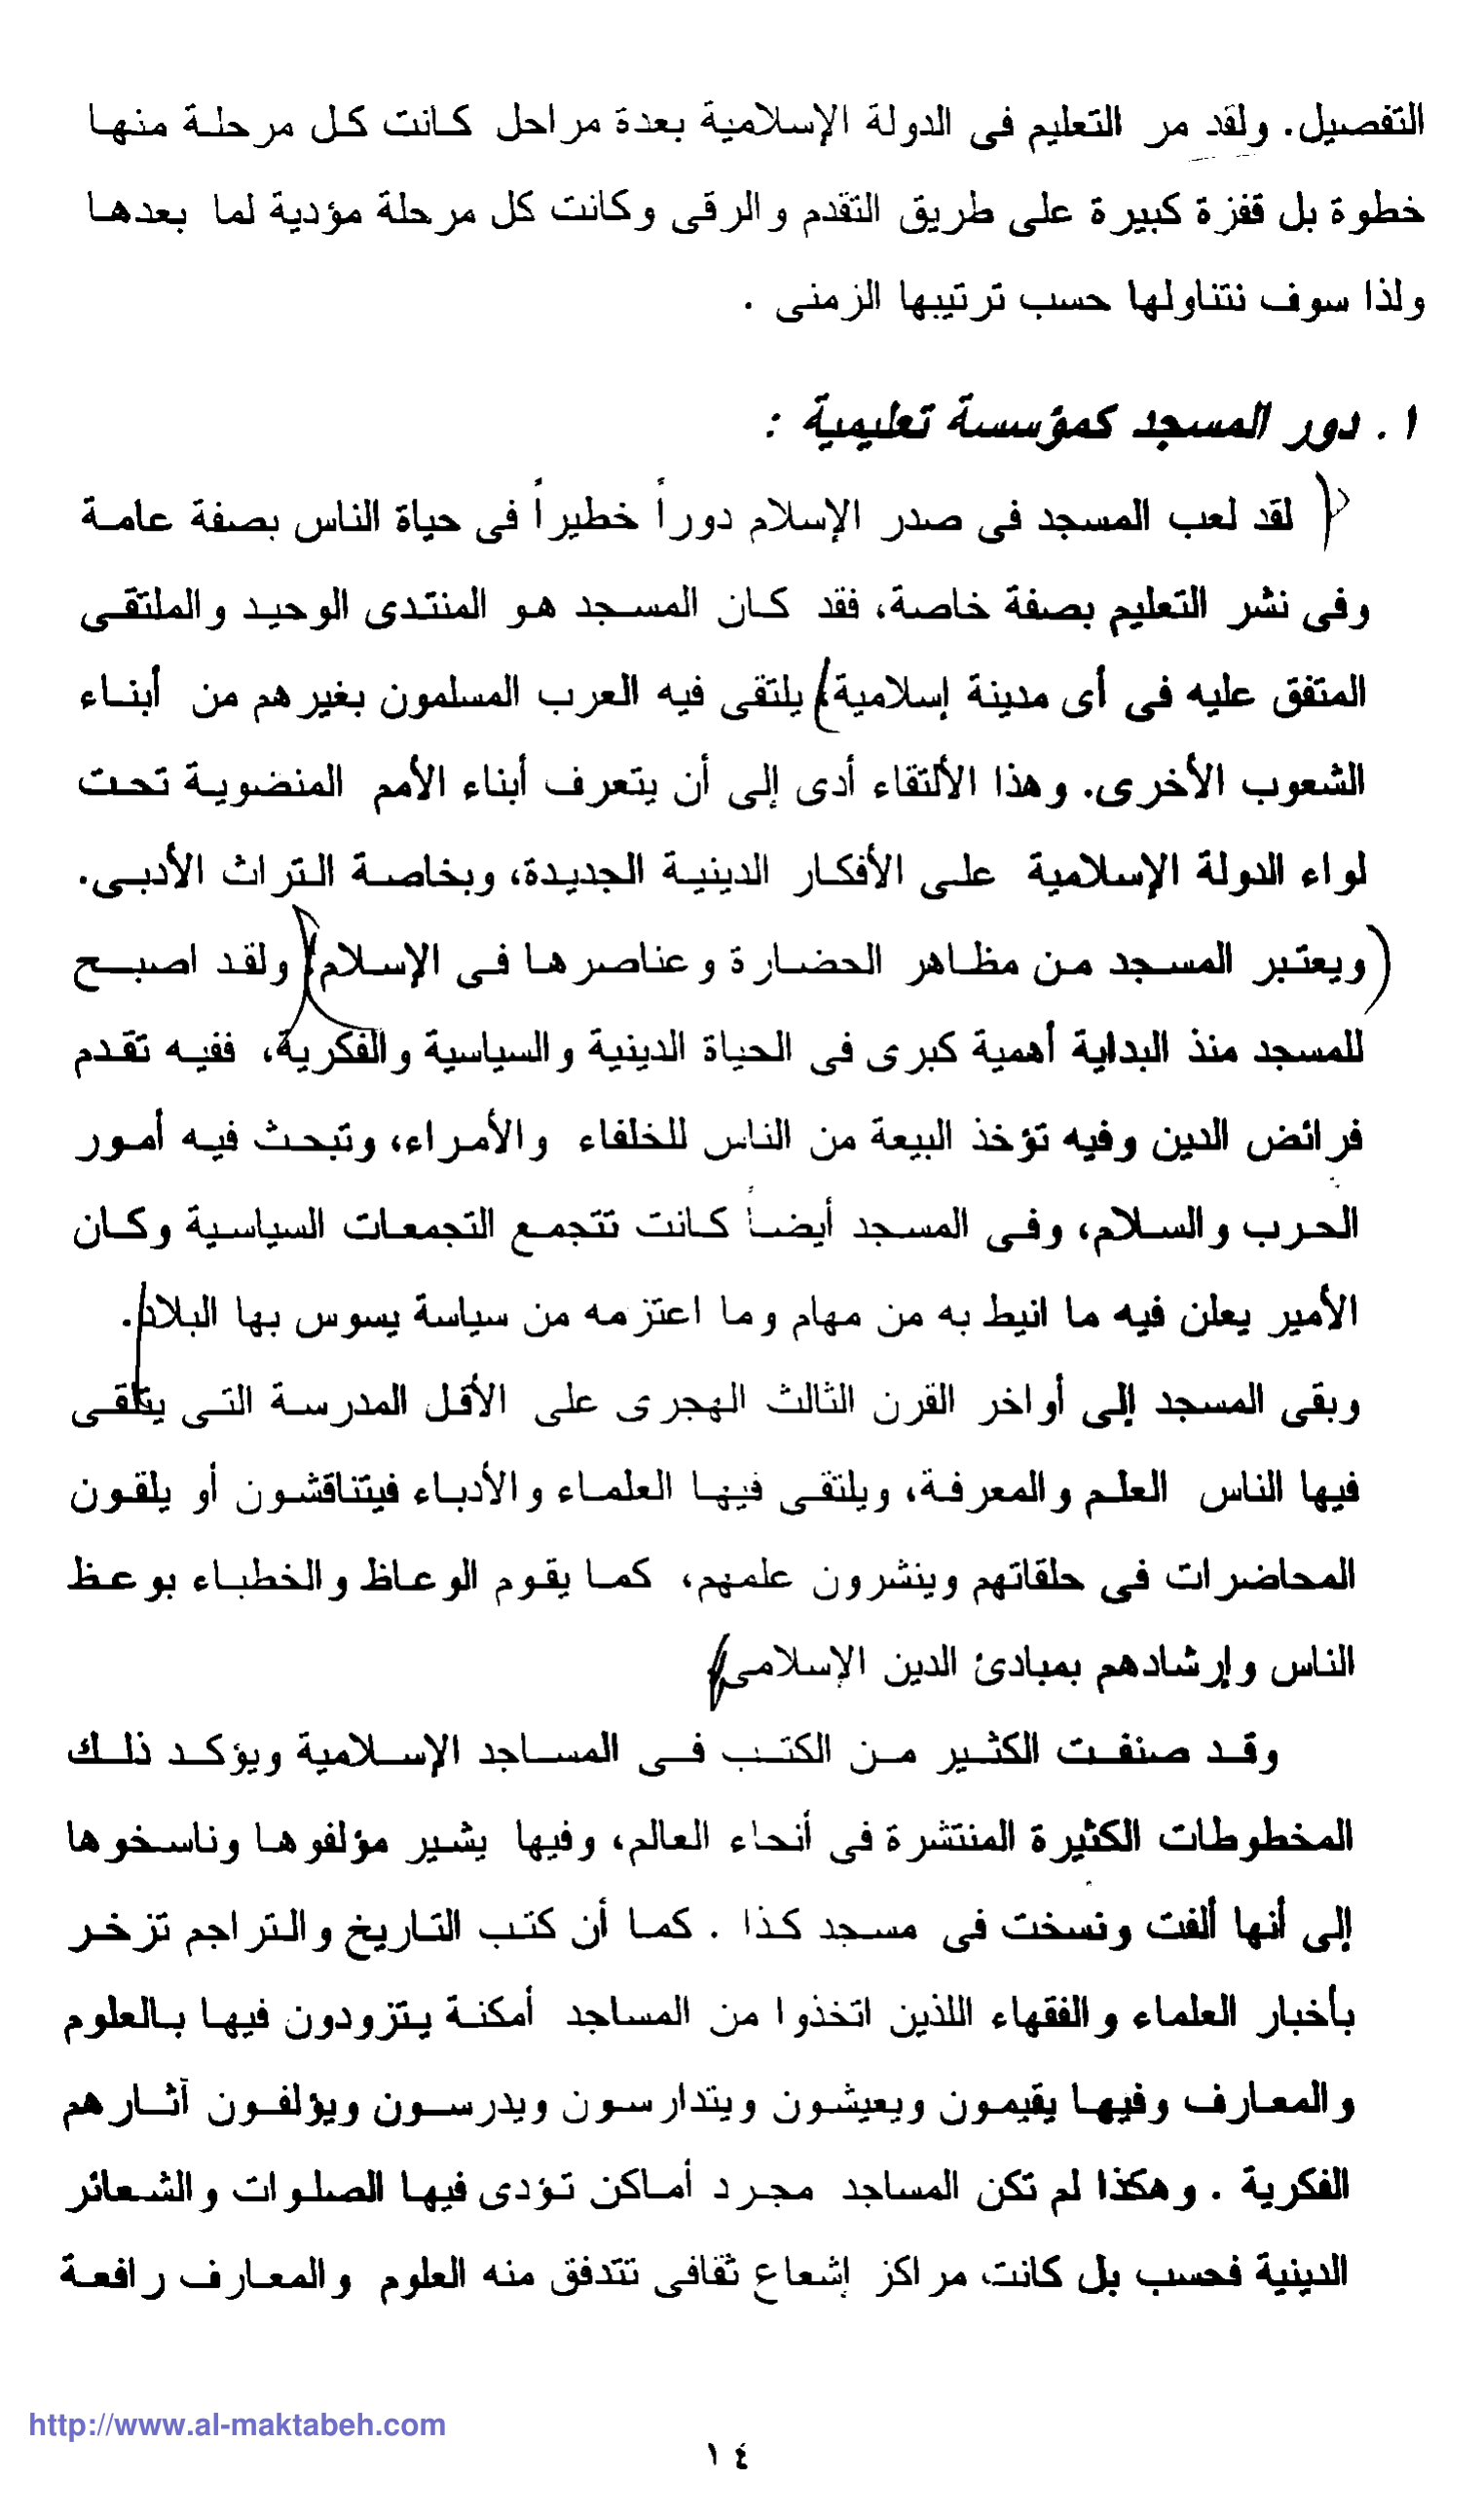 التفصيل. ولقد مر التعليم فى الدولة الإسلامية بعدة مراحل كانت كل مرحلة منها
خطوة بل قفزة كبيرة على طريق التقدم والرقى وكانت كل مرحلة مؤدية لما بعدها
ولذا سوف نتناولها حسب ترتيبها الزمنى .
١. دور المسجد كمؤسسة تعليمية :
لقد لعب المسجد فى صدر الإسلام دوراً خطيراً فى حياة الناس بصفة عامة
وفى نشر التعليم بصفة خاصة، فقد كان المسجد هو المنتدى الوحيد والملتقى
المتفق عليه فى أى مدينة إسلامية يلتقى فيه العرب المسلمون بغيرهم من أبناء
الشعوب الأخرى. وهذا الألتقاء أدى إلى أن يتعرف أبناء الأمم المنضوية تحت
لواء الدولة الإسلامية على الأفكار الدينية الجديدة، وبخاصة التراث الأدبى.
(ويعتبر المسجد من مظاهر الحضارة وعناصرها فى الإسلام) ولقد اصبح
للمسجد منذ البداية أهمية كبرى فى الحياة الدينية والسياسية والفكرية، ففيه تقدم
فرائض الدين وفيه تؤخذ البيعة من الناس للخلفاء والأمراء، وتبحث فيه أمور
الحرب والسلام، وفى المسجد أيضاً كانت تتجمع التجمعات السياسية وكان
الأمير يعلن فيه ما انيط به من مهام وما اعتزمه من سياسة يسوس بها البلاد.
وبقى المسجد إلى أواخر القرن الثالث الهجرى على الأقل المدرسة التى يتلقى
فيها الناس العلم والمعرفة، ويلتقى فيها العلماء والأدباء فيتناقشون أو يلقون
المحاضرات فى حلقاتهم وينشرون علمهم، كما يقوم الوعاظ والخطباء بوعظ
الناس وإرشادهم بمبادئ الدين الإسلامى
وقد صنفت الكثير من الكتب فى المساجد الإسلامية ويؤكد ذلك
المخطوطات الكثيرة المنتشرة فى أنحاء العالم، وفيها يشير مؤلفوها وناسخوها
إلى أنها ألفت ونسخت فى مسجد كذا . كما أن كتب التاريخ والتراجم تزخر
بأخبار العلماء والفقهاء اللذين اتخذوا من المساجد أمكنة يتزودون فيها بالعلوم
والمعارف وفيها يقيمون ويعيشون ويتدارسون ويدرسون ويؤلفون آثارهم
الفكرية . وهكذا لم تكن المساجد مجرد أماكن تؤدى فيها الصلوات والشعائر
الدينية فحسب بل كانت مراكز إشعاع ثقافى تتدفق منه العلوم والمعارف رافعة
http://www.al-maktabeh.com
١٤